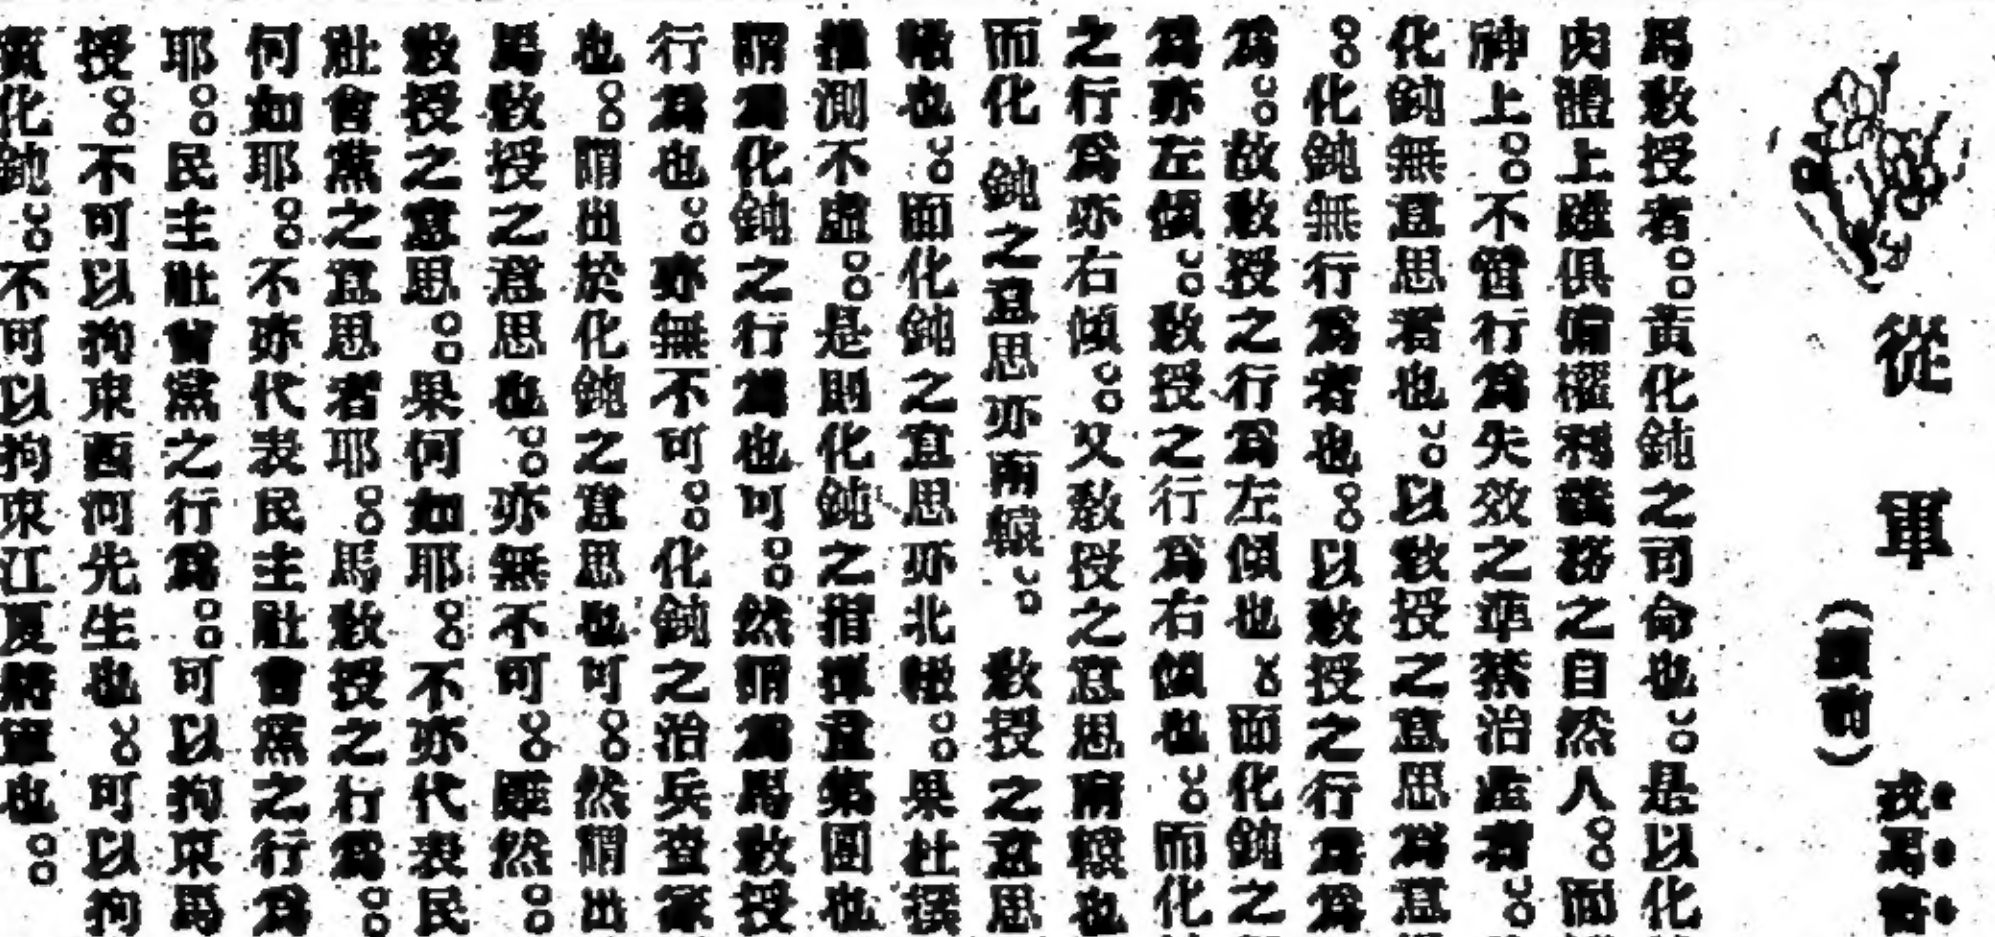 從軍
(續前)
戎馬
馬敎授者。黃化鈍之司命也。是以化
肉體上雖俱備權利義務之自然人。而
神上。不啻行爲失效之準禁治產者。
化鈍無意思者也。以敎授之意思爲意
。化鈍無行爲者也。以敎授之行爲爲
爲。故敎授之行爲左傾也。而化鈍之
爲亦左傾。敎授之行爲右傾也。而化
之行爲亦右傾。又敎授之意思南轅也
而化鈍之意思亦南轅。敎授之意思
轍也。而化鈍之意思亦北轍。果杜撰
推測不虛。是則化鈍之指揮直第團也
謂爲化鈍之行爲也可。然謂爲馬敎授
行爲也。亦無不可。化鈍之治兵查家
也。謂出於化鈍之意思也可。然謂出
馬敎授之意思也。亦無不可。雖然。
敎授之意思。果何如耶。不亦代表民
社會黨之意思者耶。馬敎授之行爲。
何如耶。不亦代表民主社會黨之行爲
耶。民主社會黨之行爲。可以拘束馬
授。不可以拘束西河先生也。可以拘
黃化鈍。不可以拘束江夏將軍也。